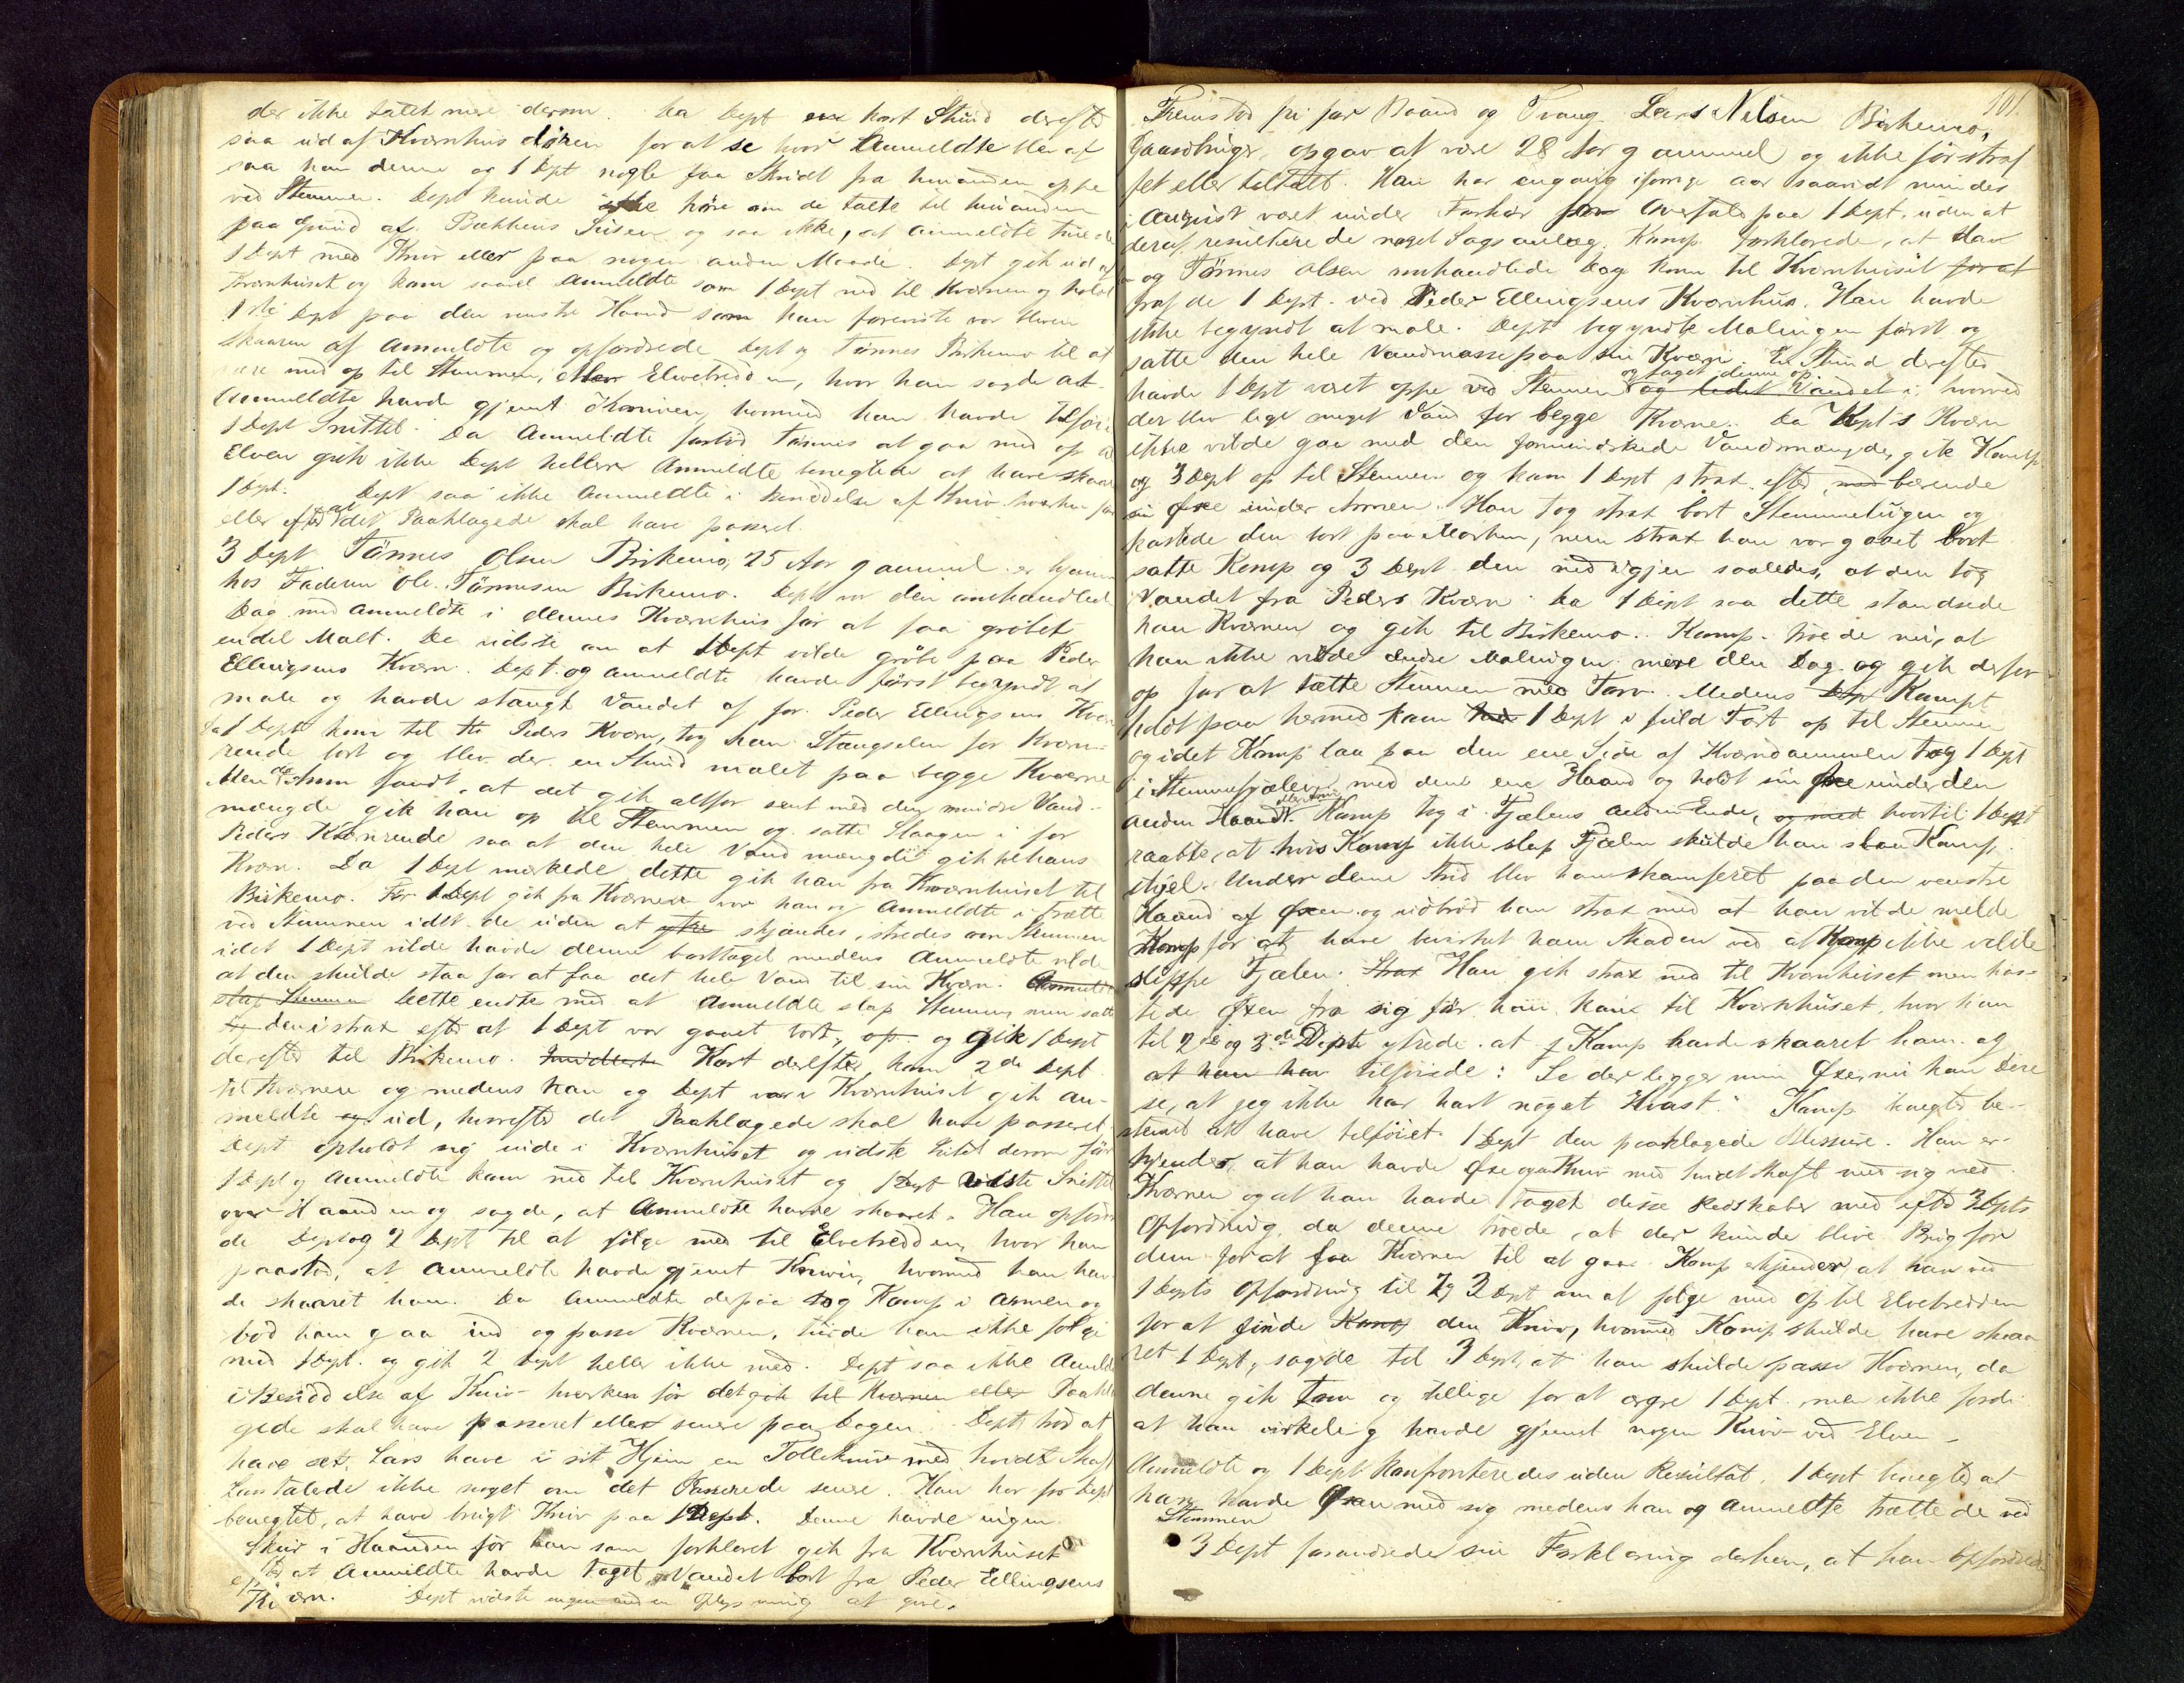 der ikke talet mere derom. Da Dept en kort Stund derefter
saa ud af Kværnhusdøren for at se hvor Anmeldte blev af
saa han denne og 1 Dept nogle faa Skridt fra hinanden oppe
ved Stemmen. Dept kunde ikke høre om de talte til hinanden
paa Grund af Bækkens Susen og saa ikke, at Anmeldte truede
1 Dept med Kniv eller paa nogen anden Maade. Dept gik ud af
Kværnhuset og kom saavel Anmeldte som 1 Dept ned til Kværnen og holdt
1ste Dept paa den venstre Haand som han foreviste var bleven
skaaren af Anmeldte og opfordrede Dept og Tønnes Birkemo til at
være med op til Stemmen, eller Elvebredden, hvor han sagde at
Anmeldte havde gjemt Kniven, hvormed han havde tilføiet
1 Dept Snittet. Da Anmeldte forbød Tønnes at gaa med op til
Elven gik ikke Dept heller. Anmeldte benegtede at have skaaret
1 Dept. Dept saa ikke Anmeldte i Besiddelse af Kniv hverken før
eller efter at det Paaklagede skal have passeret.
3 Dept Tønnes Olsen Birkemo, 25 Aar gammel er hjemme
hos Faderen Ole Tønnesen Birkemo. Dept var den omhandlede
Dag med Anmeldte i dennes Kværnhus for at faa grøbet
endel Malt. De vidste om at 1 Dept vilde grøbe paa Peder
Ellingsens Kværn. Dept og Anmeldte havde først begyndt at
male og havde stængt Vandet af for Peder Ellingsens Kværn
Da 1 Dept kom til Peders Kværn, tog han Stængselen for Kværn-
rende bort og blev der en Stund malet paa begge Kværne
Men da han fandt, at det gik altfor sent med den mindre Vand-
mængde gik han op til Stemmen og satte Slaagen i for
Peders Kværnrende saa at den hele Vandmængde gik til hans
Kværn. Da 1 Dept mærkede dette gik han fra Kværnhuset til
Birkemo. Før 1 Dept gik fra Kværnen var han og Anmeldte i Trætte
ved Stemmen idet de uden at ytre skjændes, stredes om Stemmen
idet 1 Dept vilde havde denne borttaget medens Anmeldte vilde
at den skulde staa for at faa det hele Vand til sin Kværn. Anmeldte
slap Stemmen Dette endte med at Anmeldte slap Stemmen men satte
den i strax efter at 1 Dept var gaaet bort, og gik 1 Dept
derefter til Birkemo. Imidlertid Kort derefter kom 2den Dept
til Kværnen og medens han og Dept var i Kværnhuset gik An-
meldte ud, hvorefter det Paaklagede skal have passeret.
Dept opholdt sig inde i Kværnhuset og vidste Intet derom før
1 Dept og Anmeldte kom ned til Kværnhuset og 1 Dept viste Snittet
over Haanden og sagde, at Anmeldte havde skaaret. Han opfordre-
de Dept og 2 Dept til at følge med til Elvebredden, hvor han
paastod, at Anmeldte havde gjemt Kniven, hvormed han hav-
de skaaret ham. Da Anmeldte derpaa tog Kamp i Armen og
bød ham gaa ind og passe Kværnen, turde han ikke følge
med 1 Dept. og gik 2 Dept heller ikke med. Dept saa ikke Anmeldte
i Besiddelse af Kniv hverken før det gik til Kværnen eller Paakla-
gede skal have passeret eller senere paa Dagen. Dept tror at
have set Lars have i sit Hjem en Tolleknive med hvidt Skaft
Lars talede ikke noget om det Passerede senere. Han har for Dept
benegtet, at have brugt Kniv paa 1 Dept. Denne havde ingen
Skur i Haanden før han som forklaret gik fra Kværnhuset
efter at Anmeldte havde taget Vandet bort fra Peder Ellingsens
Kværn. Dept vidste ingen anden Oplysning at give.
101.
Fremstod fri for Baand og Tvang Lars Nilsen Birkemo,
Gaardbruger, opgav at være 28 Aar gammel og ikke før straf
fet eller tiltalt. Han har engang iforrige aar saavidt mindes
i August været under Forhør for Overfald paa 1 Dept. uden at
deraf resulterede noget Sagsanlæg. Komp. forklarede, at Han
og Tønnes Olsen omhandlede Dag kom til Kværnhuset for at
traf de 1 Dept. ved Peder Ellingsens Kværnhus. Han havde
ikke begyndt at male. Dept begyndte Malingen først og
satte den hele Vandmasse paa sin Kværn. En Stund derefter
havde 1 Dept været oppe ved Stemmen og taget denne op og ledet Vandet i hvorved
der blev lige meget Vand for begge Kværne. Da Dept's Kværn
ikke vilde gaa med den formindskede Vandmængde, gik Komp
og 3 Dept op til Stemmen og kom 1 Dept strax efter, med bærende
sin Øxe under Armen. Han tog strax bort Stemmelugen og
kastede den bort paa Marken, men strax han var gaaet bort
satte Komp og 3 Dept den ned igjen saaledes, at den tog
Vandet fra Peders Kværn. Da 1 Dept saa dette standsede
han Kværnen og gik til Birkemo. Komp. troede nu, at
han ikke vilde ændse Malingen mere den Dag og gik derfor
op for at tætte Stemmen med Torv. Medens Dept Kompt
holdt paa hermed kom 1 Dept i fuld Fart op til Stemmen
og idet Komp laa paa den ene Side af Kværndammen tog 1 Dept
i Stemmefjælen med den ene Haand og holdt sin Øxe under den
anden Haand. Komp tog i Fjælens anden Ende, og med hvortil 1 Dept
raabte, at hvis Komp ikke slap Fjælen skulde han slaa Komp.
ihjel. Under denne Strid blev han skamferet paa den venstre
Haand af Øxen og udbrød han strax med at han vilde melde
Komp for at have bevirket ham Skaden ved at Komp ikke vilde
slippe Fjælen. Strax Han gik strax ned til Kværnhuset men kas-
tede Øxen fra sig før han kom til Kværnhuset, hvor han
til 2de og 3de Depte ytrede at Komp havde skaaret ham og
at han har tilføiede: Se der ligger min Øxe, nu kan Dere
se, at jeg ikke har havt noget Hvast." Komp benegter be-
stemt at have tilføiet 1 Dept den paaklagede Blessure. Han er-
kjender, at han havde Øxe og en Kniv med hvidt Skaft med sig ved
Kværnen og at han havde taget disse Redskaber med efter 3 Depts
Opfordring, da denne troede, at der kunde blive Brug for
dem for at faa Kværnen til at gaa. Komp erkjender, at han ved
1 Depts Opfordring til 2 og 3 Dept om at følge med op til Elvebredden
for at finde Komp den Kniv, hvormed Komp skulde have skaa
ret 1 Dept, sagde til 3 Dept, at han skulde passe Kværnen, da
denne gik tom og tillige for at ærgre 1 Dept. men ikke fordi
at han virkelig havde gjemt nogen Kniv ved Elven –
Anmeldte og 1 Dept konfronteredes uden Resultat. 1 Dept benegter at
han havde Øxen med sig medens han og Anmeldte trættede ved
Stemmen
3 Dept forandrede sin Forklaring derhen, at han opfordrede